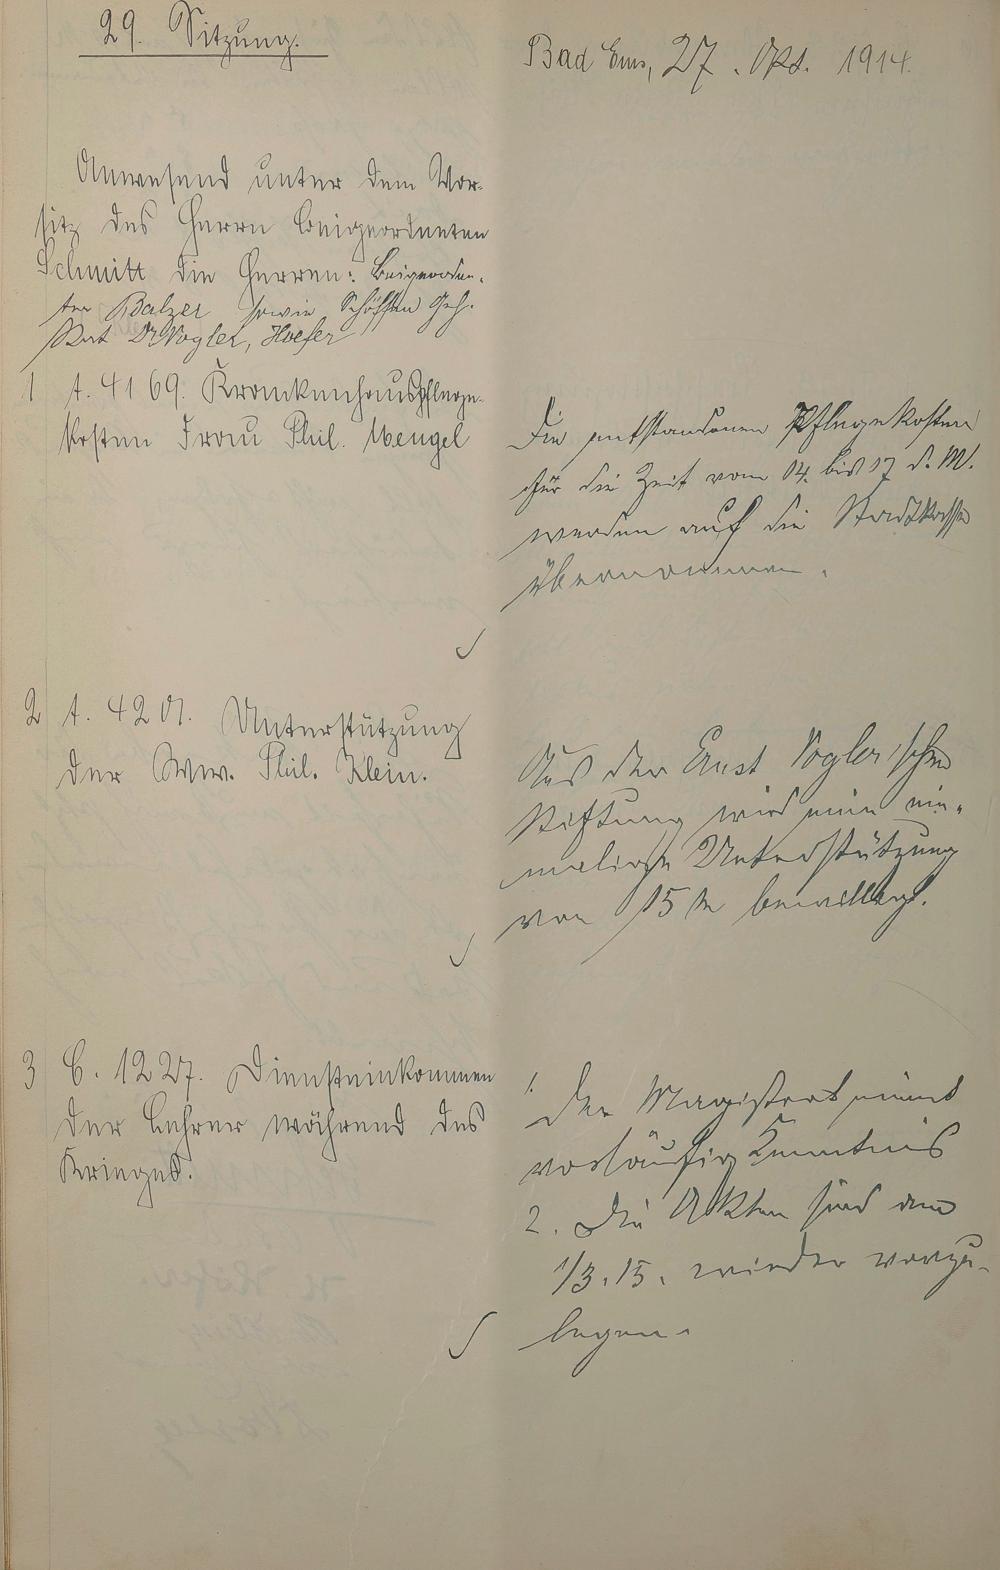 29. Sitzung.
Bad Ems, 27. Okt. 1914.
Anwesend unter dem Vor-
sitz des Herrn Beigeordneten
Schmitt die Herren: Beigeordne-
ter Balzer sowie Schöffen Geh.
Rat Dr Vogler, Hoefer
1 A. 4169. Krankenhauspflege-
kosten Frau Phil. Mengel
Die entstandenen Pflegekosten
für die Zeit vom 14. bis 17 d. M.
werden auf die Stadtkasse
übernommen.
2 A. 4201. Unterstützung
der Ww. Phil. Klein.
Aus der Ernst Vogler'schen
Stiftung wird eine ein-
malige Unterstützung
von 15 M bewilligt.
3 C. 1227. Diensteinkommen
der Lehrer während des
Krieges.
1. Der Magistrat nimmt
vorläufig Kenntnis
2. Die Akten sind am
1/3. 15. wieder vorzu-
legen.